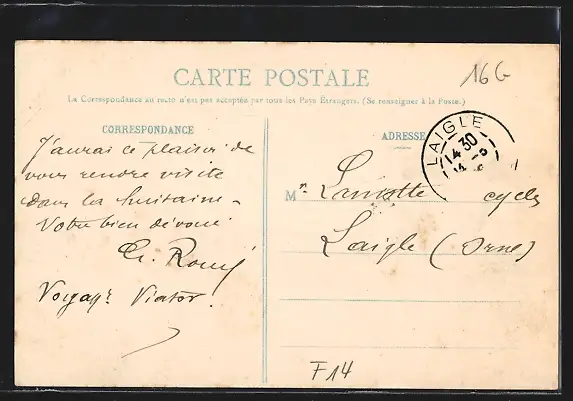 16G
CARTE POSTALE
La Correspondance au recto n'est pas acceptée par tous les Pays Étrangers. (Se renseigner à la Poste.)
CORRESPONDANCE
ADRESSE
LAIGLE
14 30
14 -
J'aurai ce plaisir de
vous rendre visite
dans la huitaine -
Votre bien dévoué
Ch.
Voyagr Viator.
Mr Lamotte cycles
Laigle (Orne)
F14